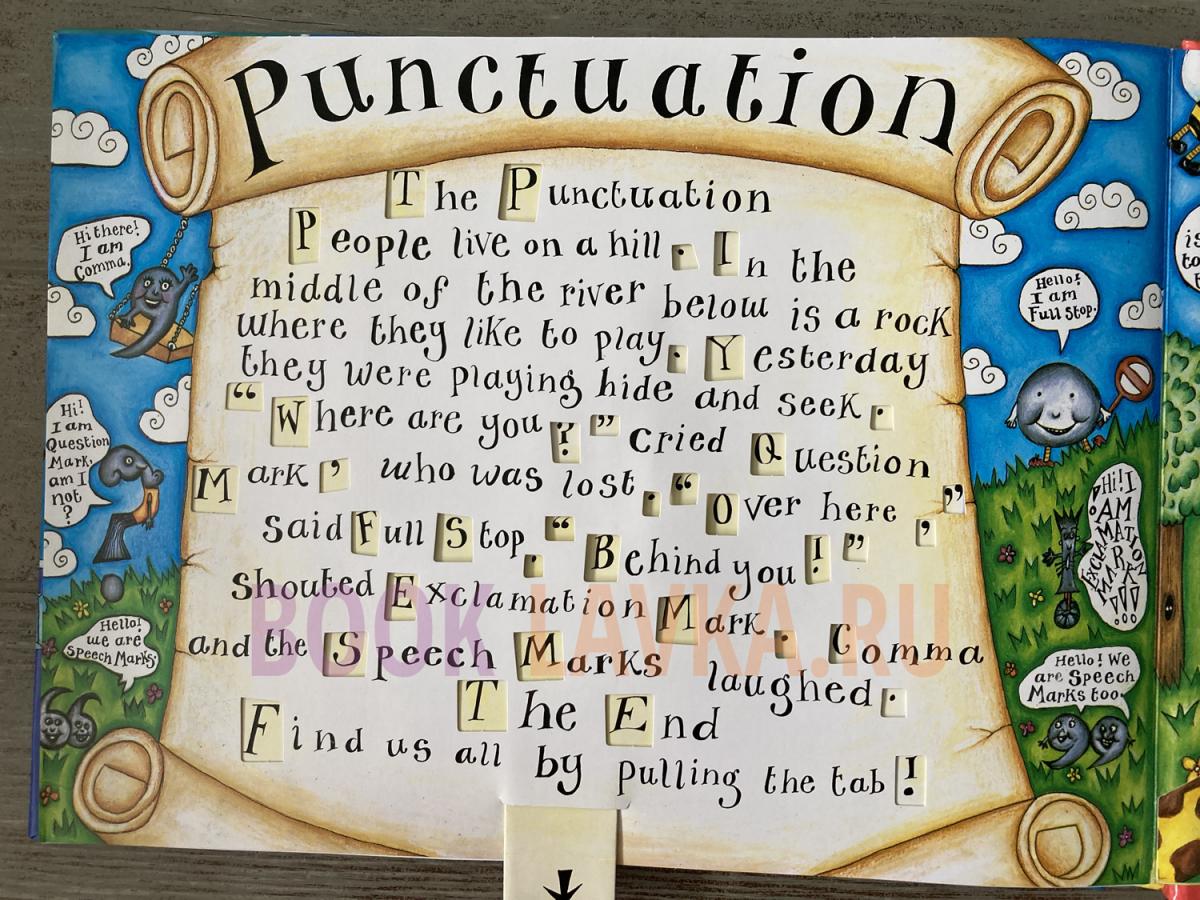 Punctuation
The Punctuation
People live on a hill. In the
middle of the river below is a rock
where they like to play. Yesterday
they were playing hide and seek.
“Where are you?” cried Question
Mark, who was lost. “Over here”,
said Full Stop. “Behind you!”
shouted Exclamation Mark. Comma
and the Speech Marks laughed.
The End
Find us all by pulling the tab!
Hi there!
I am
Comma.
Hi!
I am
Question
Mark,
am I
not
?
Hello!
we are
Speech Marks.
Hello!
I am
Full Stop.
Hi! I
AM
EXCLAMATION
MARK!!!
Hello! We
are Speech
Marks too.
is
to
BOOK LAVKA.RU